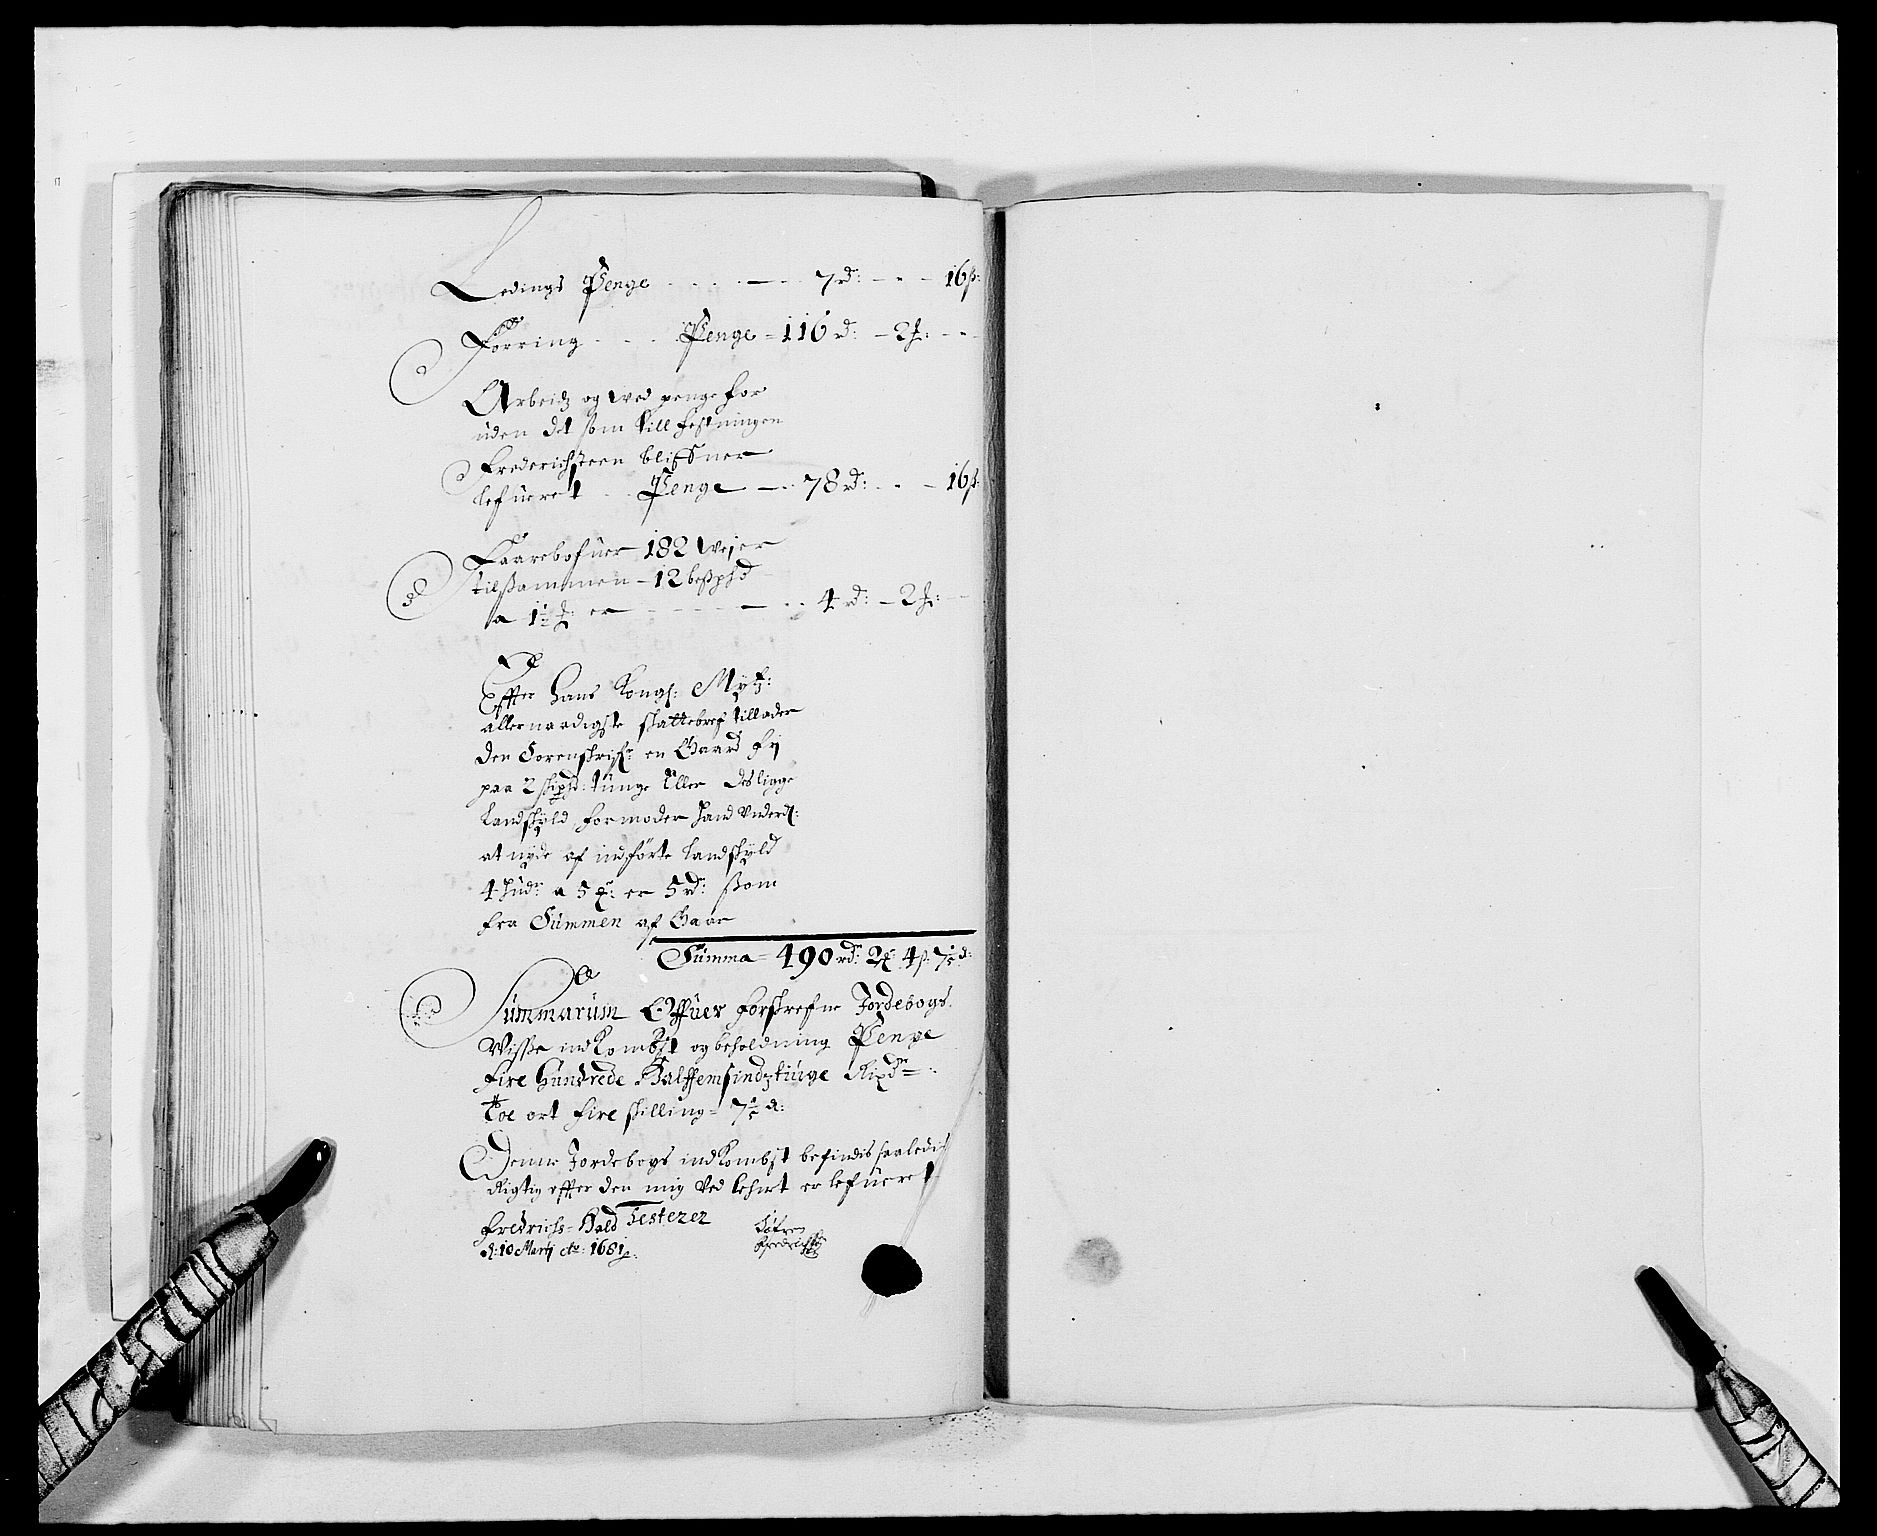 Ledings Penge - - - 7 rd: - - 16 ß:
Forring - - - Penge - 116 rd: - 2 ꝑ: - -
Arbeidz og wed penge for
uden det som till festningen
Frederichsteen blifuer
lefueret - - Penge - 78 rd: - - 16 ß:
Faarebofuer 182 weyer
tilsammen - 12 bespd
a 1½ : er - - - - 4 rd: - 2 : -
Effter Hans Kongl: Mytz:
allernaadigste skattebref tillader
den Sorenskrifr: en Gaard fri
paa 2 skipd: tunge Eller des ligge
Landskyld, formoder hand underd:
at nyde af indførte Landskyld
4 hudr: a 5 : er 5 rd: som
fra Summen af Gaar
Summa - 490 rdr: 2 4 ß: 7 d:
Summarum Offuer forskrefne Jordebogs
Wisse indkombst og beholdning Penge
Fire Hundrede Halffemsindztiuge Rixdr =
Toe ort fire skilling = 7 d:
Denne Jordebogs indkombst befindis saaledis
Rigtig effter den mig ved er lefueret
Fredrichs-Hald
d: 10 Martij Ao: 1681